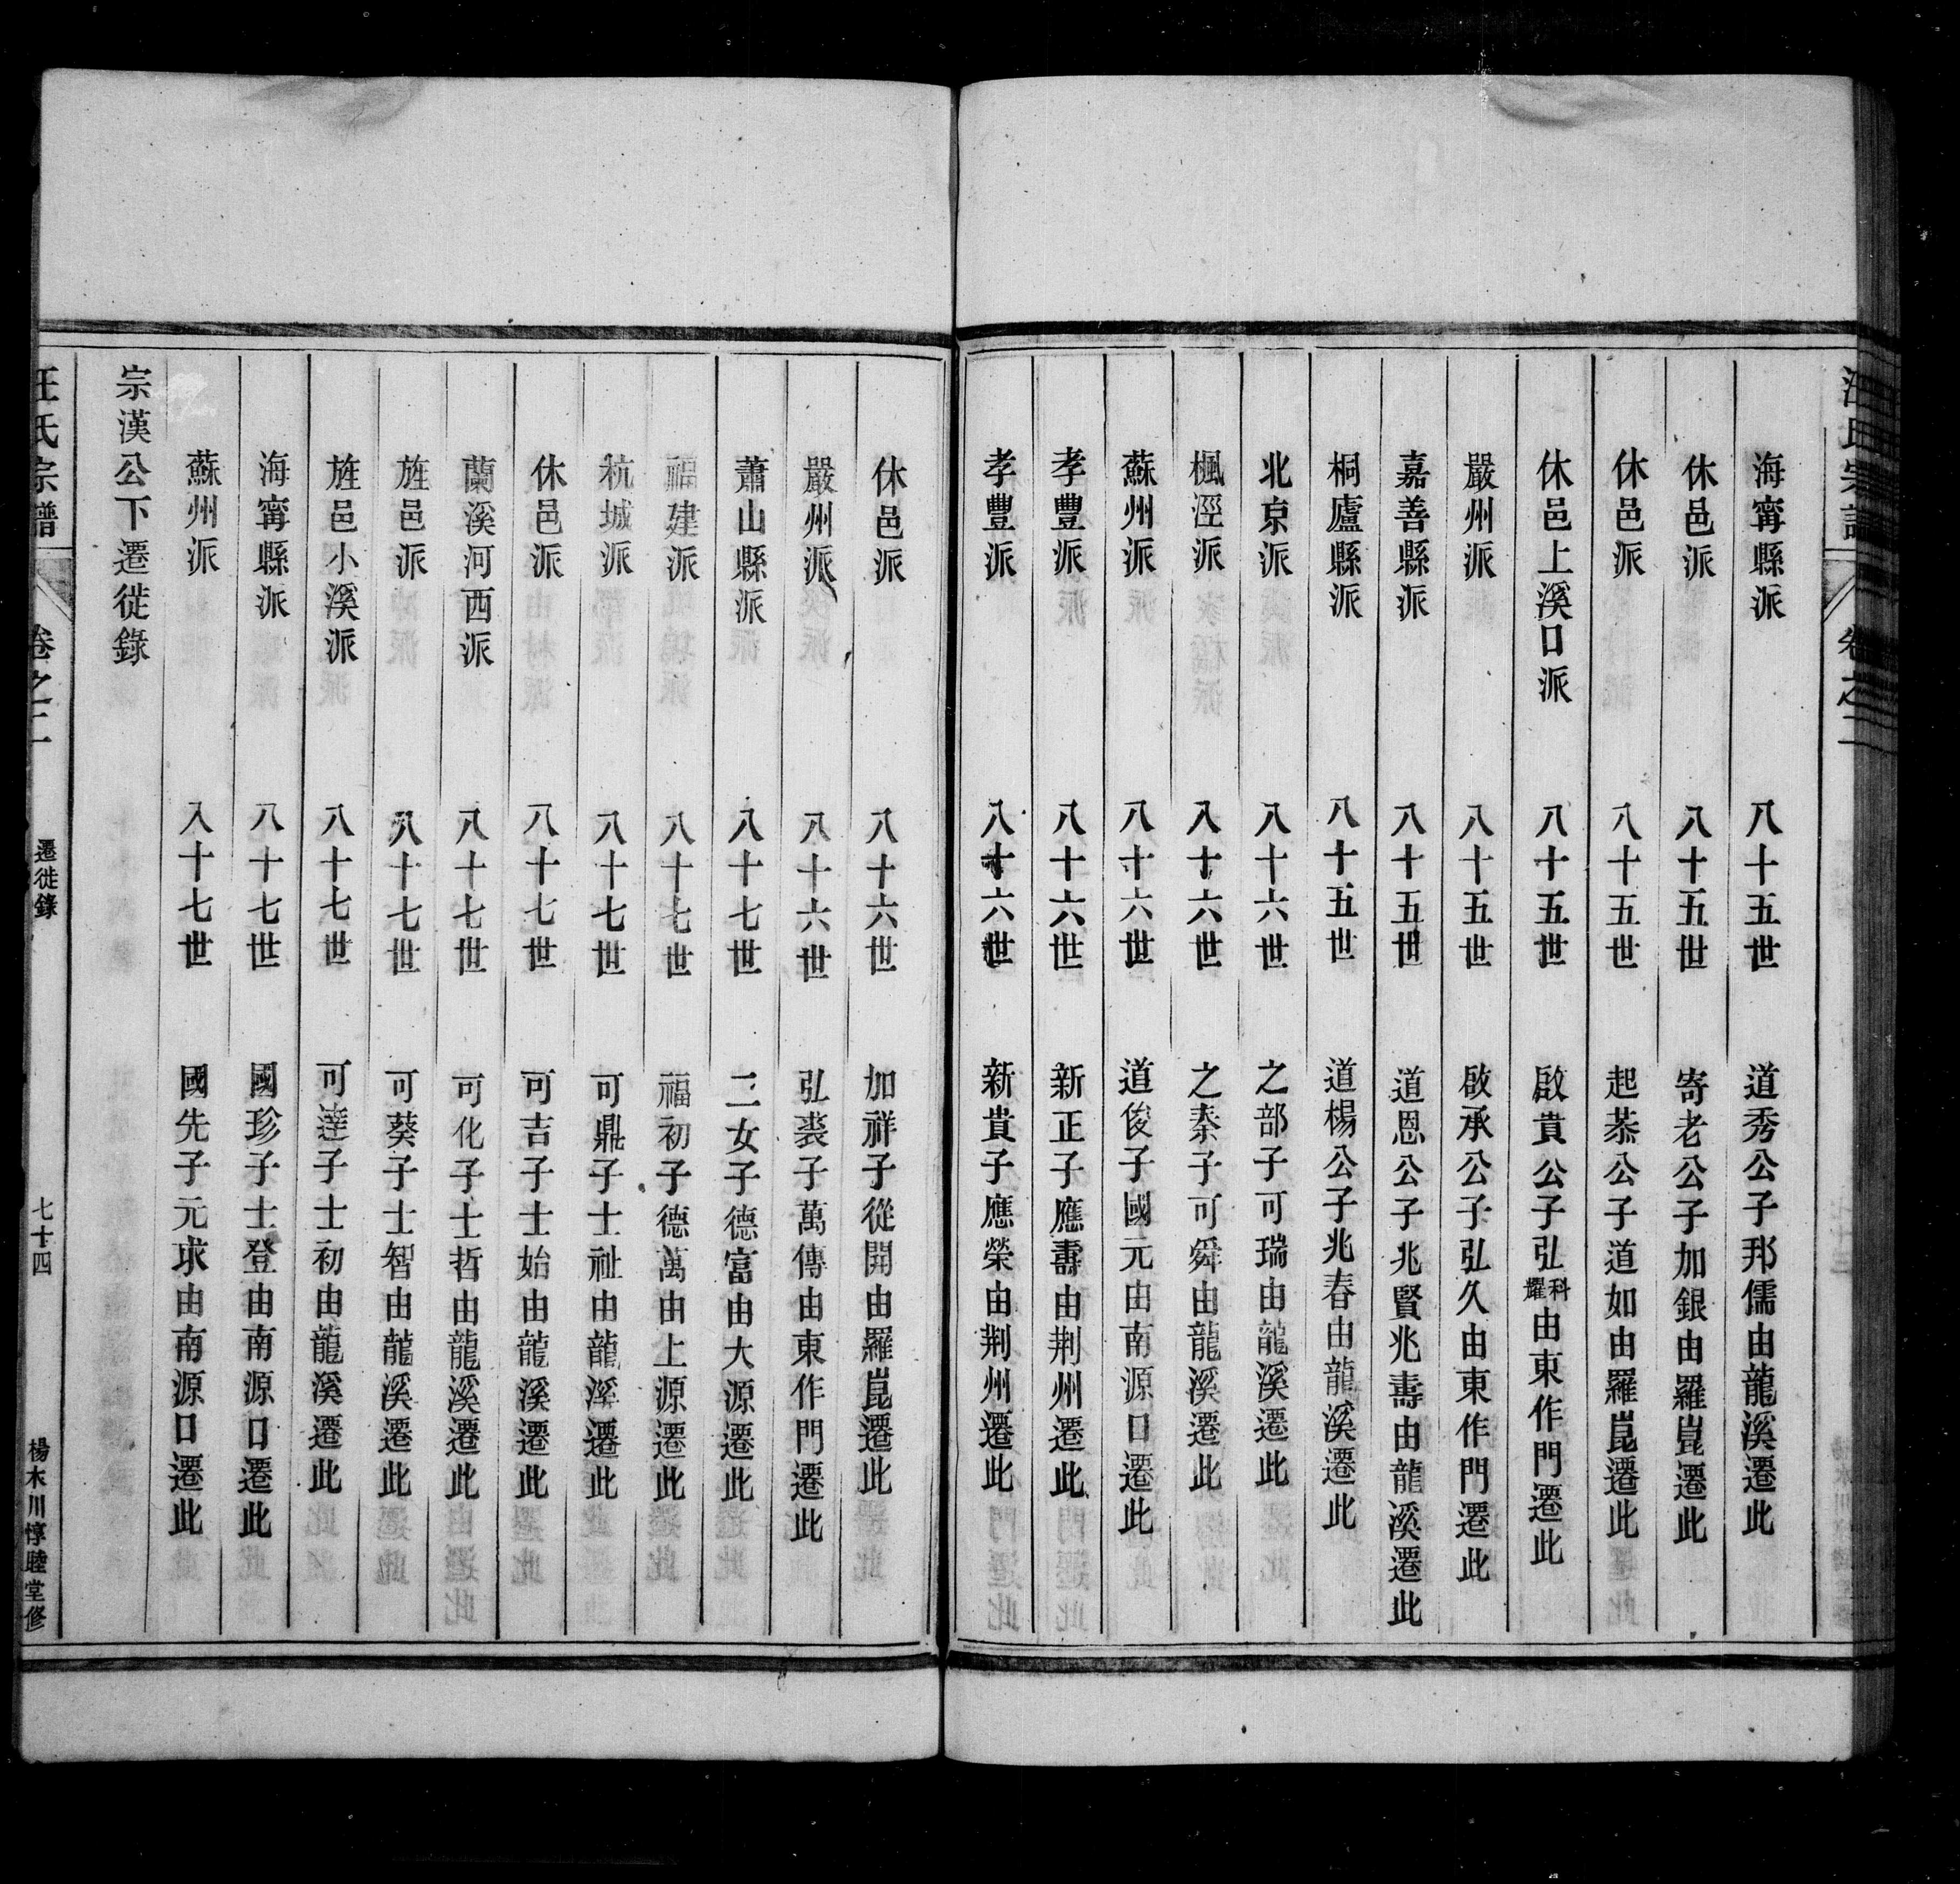 汪氏宗譜 卷之二
海甯縣派 八十五世 道秀公子邦儒由龍溪遷此
休邑派 八十五世 寄老公子加銀由羅崑遷此
休邑派 八十五世 起恭公子道如由羅崑遷此
休邑上溪口派 八十五世 啟貴公子弘科耀由東作門遷此
嚴州派 八十五世 啟承公子弘久由東作門遷此
嘉善縣派 八十五世 道恩公子兆賢兆壽由龍溪遷此
桐廬縣派 八十五世 道楊公子兆春由龍溪遷此
北京派 八十六世 之部子可瑞由龍溪遷此
楓涇派 八十六世 之秦子可舜由龍溪遷此
蘇州派 八十六世 道俊子國元由南源口遷此
孝豐派 八十六世 新正子應壽由荆州遷此
孝豐派 八十六世 新貴子應榮由荆州遷此
休邑派 八十六世 加祥子從開由羅崑遷此
嚴州派 八十六世 弘裘子萬傳由東作門遷此
蕭山縣派 八十七世 二女子德富由大源遷此
福建派 八十七世 福初子德萬由上源遷此
杭城派 八十七世 可鼎子士祉由龍溪遷此
休邑派 八十七世 可吉子士始由龍溪遷此
蘭溪河西派 八十七世 可化子士哲由龍溪遷此
旌邑派 八十七世 可葵子士智由龍溪遷此
旌邑小溪派 八十七世 可達子士初由龍溪遷此
海甯縣派 八十七世 國珍子士登由南源口遷此
蘇州派 八十七世 國先子元求由南源口遷此
宗漢公下遷徙錄
汪氏宗譜 卷之二 遷徙錄 七十四 楊木川惇睦堂修